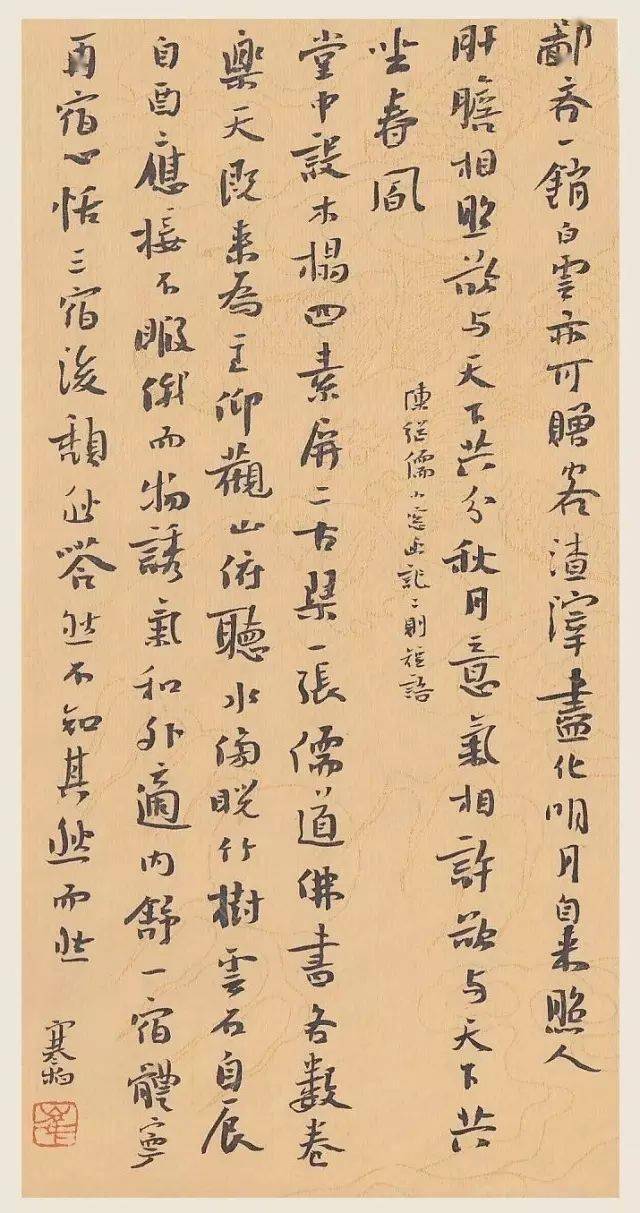 鄙吝一銷白雲亦可贈客渣滓盡化明月自来照人
肝膽相照欲与天下共分秋月意氣相許欲与天下共
坐春風
陳继儒小窓幽記二則短語
堂中設木榻四素屏二古琴一張儒道佛書各數卷
樂天既来為主仰觀山俯聽水傍睨竹樹雲石自辰
自酉應接不暇俄而物誘氣和外適内舒一宿體寧
再宿心恬三宿後頹然嗒然不知其然而然
寒